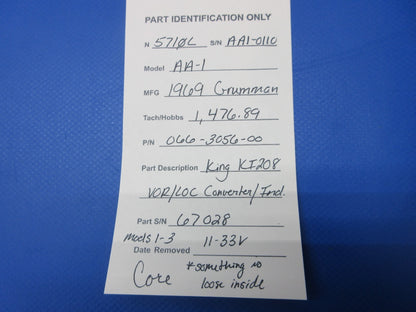 PART IDENTIFICATION ONLY
N 5710L S/N AA1-0110
Model AA-1
MFG 1969 Grumman
Tach/Hobbs 1,476.89
P/N 066-3056-00
Part Description King KI208
VOR/LOC Converter/Ind.
Part S/N 67028
Mods 1-3 11-33V
Date Removed
Core *something is
loose inside